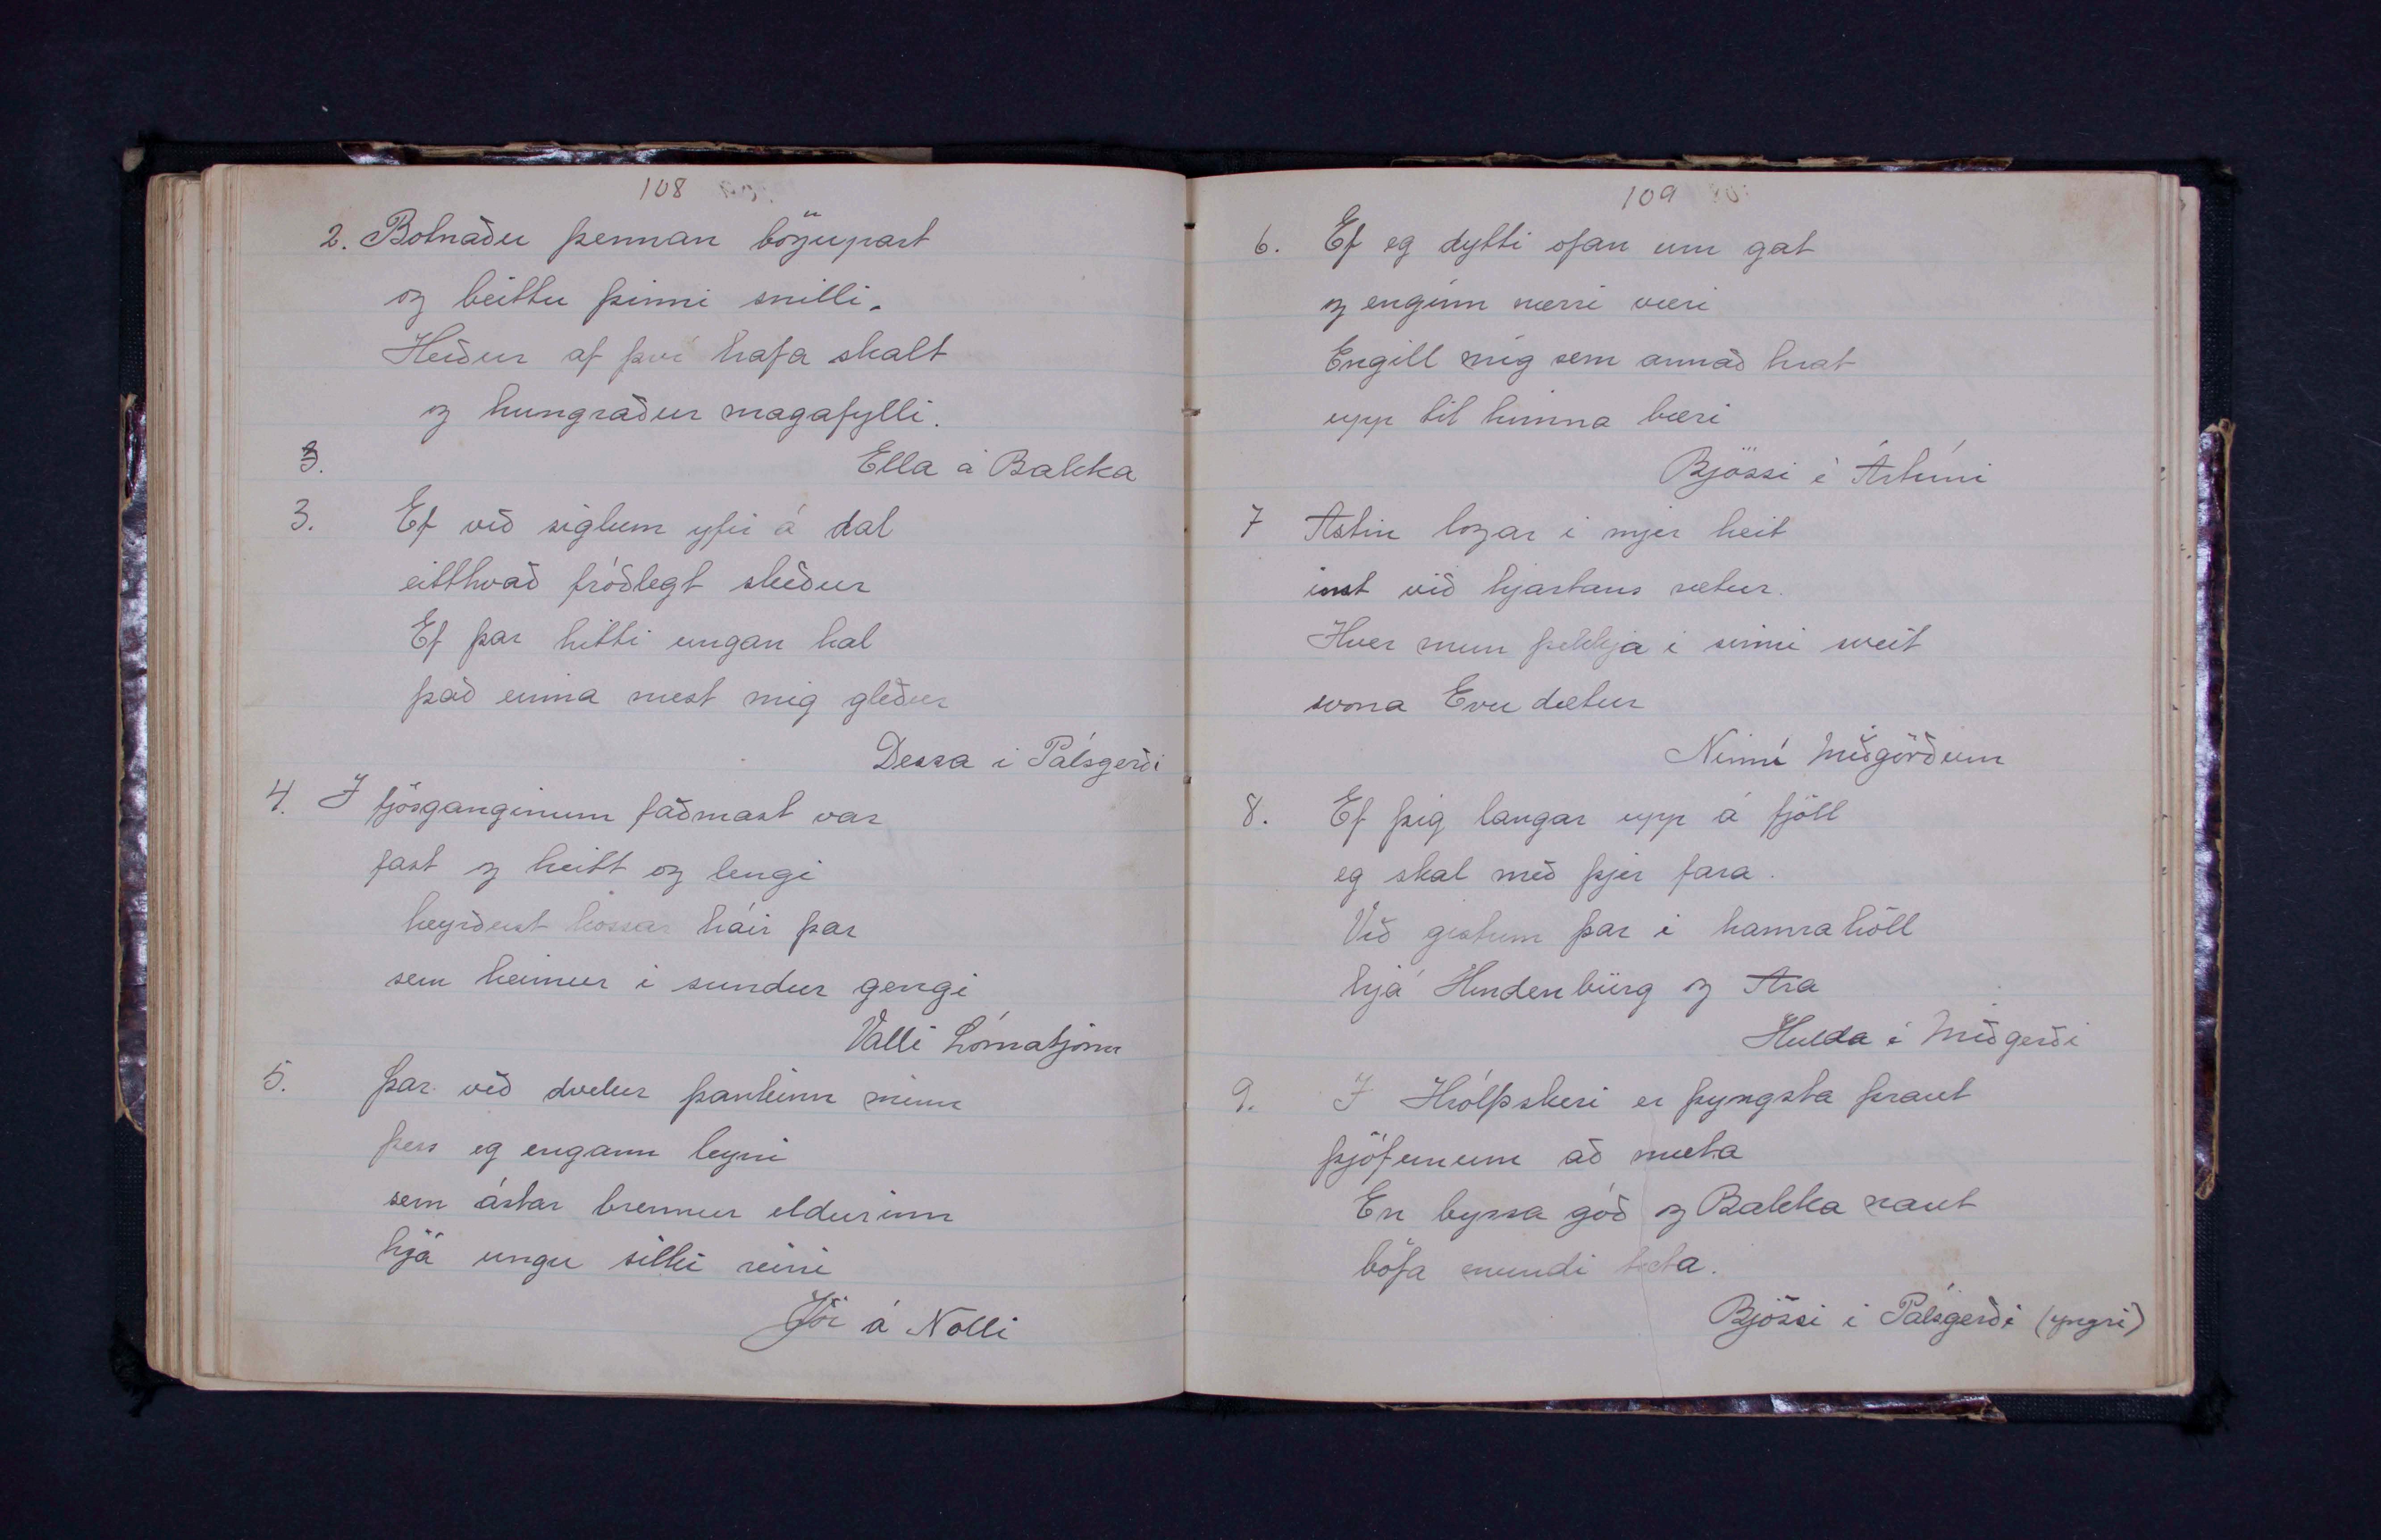 108
2. Botnaðu þennan bögupart
og beittu þinni snilli.
Heiður af því hafa skalt
og hungraður magafylli.
3. Ella á Bakka
3. Ef við siglum yfir á dal
eitthvað fróðlegt skeður
Ef þar hitti ungan hal
það einna mest mig gleður
Dessa i Pálsgerði
4. I fjósganginum faðmast var
fast og heitt og lengi
heyrðust kossar háir þar
sem heimur i sundur gengi
Valli Lómatjörn
5. Þar við dvelur þankinn minn
þess eg engann leyni
sem ástar brennur eldurinn
hjá ungu silki reini
Jói á Nolli
109
6. Ef eg dytti ofan um gat
og enginn nærri væri
Engill mig sem annað hrat
upp til himna bæri
Bjössi i Ártúni
7 Astin logar i mjer heit
inst við hjartans rætur.
Hver mun þekkja i sinni sveit
svona Evu dætur
Ninni Miðgörðum
8. Ef þig langar upp á fjöll
eg skal með þjer fara.
Við gistum þar i hamrahöll
hjá Hindenbürg og Ara
Hulda i Miðgerði
9. I Hrólfsskeri er þyngsta þraut
þjófunum að mæta
En byssa góð og Bakka naut
bófa mundi tæta.
Bjössi i Pálsgerði (yngri)